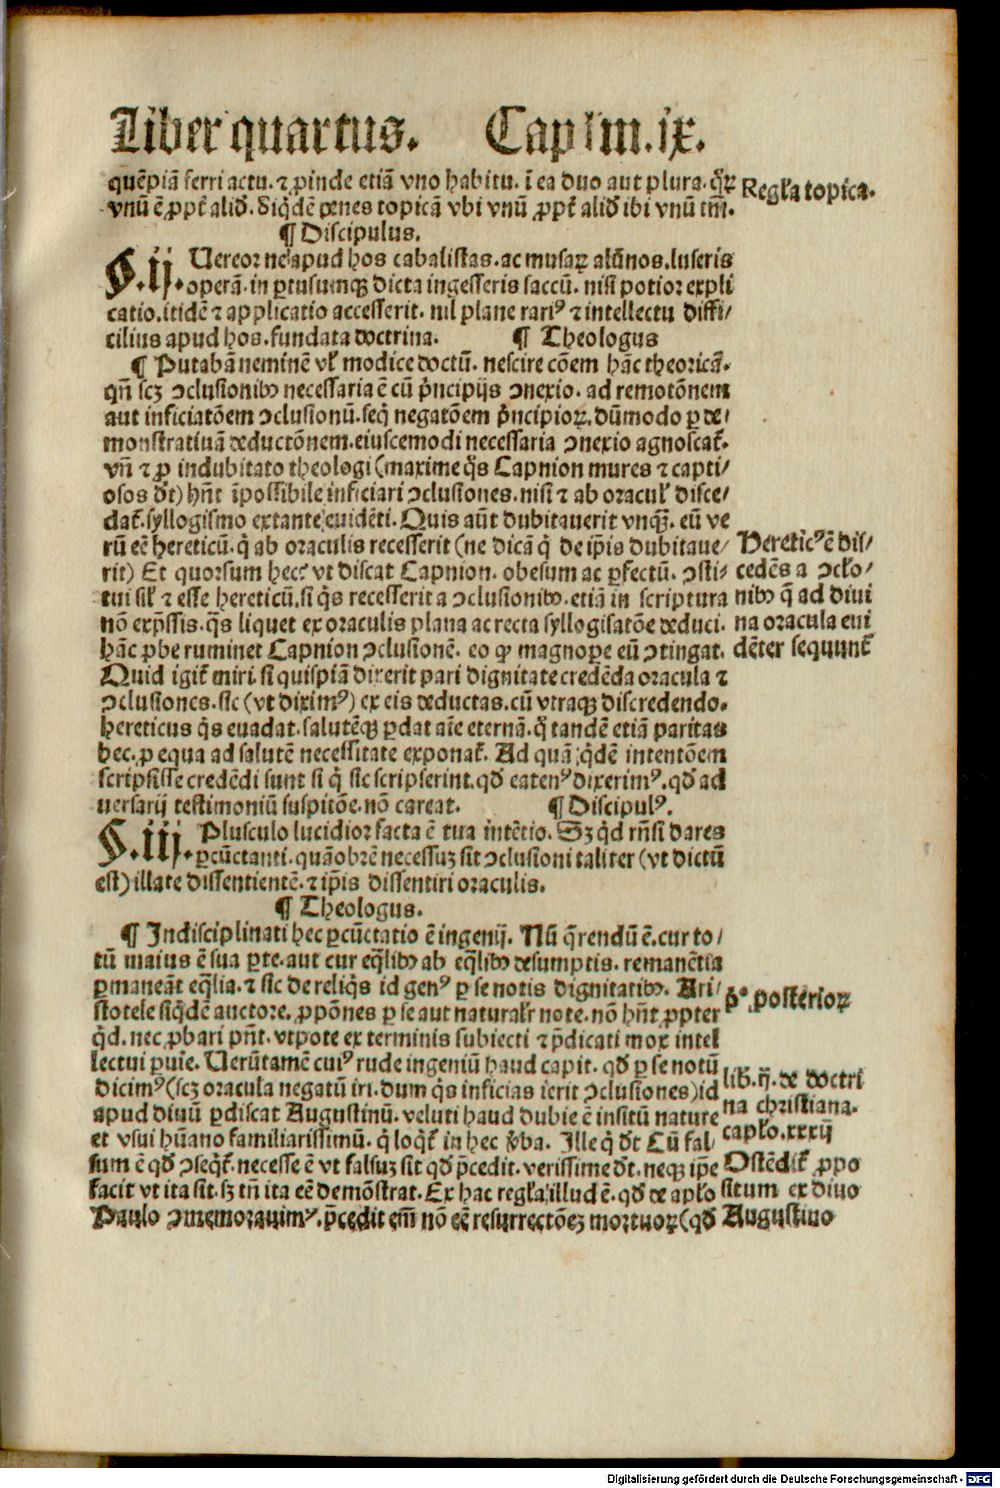 Liber quartus. Capľm.ix.
quēpiā ferri actu. ⁊ ꝓinde etiā vno habitu. ī ea duo aut plura. qꝝ
vnū ē ꝓpť aliđ. Siq̇dē penes topicā vbi vnū ꝓpť aliđ ibi vnū tm̄.
Regl̄a topica.
¶ Discipulus.
§.ij. Uereor ne apud hos cabalistas. ac musaꝝ alūnos. luseris
operā. in ꝑtusumqꝫ dicta ingesseris saccū. nisi potior expli
catio. itidē ⁊ applicatio accesserit. nil plane rariꝰ ⁊ intellectu diffi/
cilius apud hos. fundata doctrina. ¶ Theologus
¶ Putabā neminē vľ modice doctū. nescire cōem hāc theoricā.
qn̄ scꝫ ꝯclusionibꝰ necessaria ē cū pͥncipijs ꝯnexio. ad remotōnem
aut inficiatōem ꝯclusionū. seq̇ negatōem pͥncipioꝝ. dūmodo ꝑ de/
monstratiuā deductōnem. eiuscemodi necessaria ꝯnexio agnoscať.
vn̄ ⁊ ꝓ indubitato theologi (maxime q̇s Capnion mures ⁊ capti/
osos đt) hn̄t īpossibile inficiari ꝯclusiones. nisi ⁊ ab oracuľ disce/
dať. syllogismo extante euidēti. Quis aūt dubitauerit vnqꝫ. eū ve
rū eē hereticū. q̇ ab oraculis recesserit (ne dicā q̇ de ip̄is dubitaue/
rit) Et quorsum hec? vt discat Capnion. obesum ac ꝑfectū. ꝯsti/
tui siľ ⁊ esse hereticū. si q̇s recesserit a ꝯclusionibꝰ. etiā in scriptura
nō exp̄ssis. q̇s liquet ex oraculis plana ac recta syllogisatōe deduci.
hāc ꝓbe ruminet Capnion ꝯclusionē. eo ꝙ magnopere eū ꝯtingat.
Hereticꝰ ē dis/
cedēs a ꝯclo/
nibꝰ q̄ ad diui
na oracula eui
dēter sequunť
Quid igiť miri. si quispiā dixerit pari dignitate credēda oracula ⁊
ꝯclusiones. sic (vt diximꝰ) ex eis deductas. cū vtraqꝫ discredendo.
hereticus q̇s euadat. salutēqꝫ ꝑdat aīe eternā. q̄ tandē etiā paritas
hec. ꝑ equa ad salutē necessitate exponať. Ad quā q̇dē intentōem
scripsisse credēdi sunt si q̇ sic scripserint. qđ eatenꝰ dixerimꝰ. qđ ad
uersarij testimoniū suspitōe. nō careat. ¶ Discipulꝰ.
§.iij. Plusculo lucidior facta ē tua intētio. Sꝫ q̇d rn̄si dares
ꝑcūctanti. quāobrē necessuꝫ sit ꝯclusioni taliter (vt dictū
est) illate dissentientē. ⁊ ip̄is dissentiri oraculis.
¶ Theologus.
¶ Indisciplinati hec ꝑcūctatio ē ingenij. Nū q̄rendū ē. cur to/
tū maius ē sua ꝑte. aut cur eq̄libꝰ ab eq̄libꝰ desumptis. remanētia
ꝑmaneāt eq̄lia. ⁊ sic de reliq̇s id genꝰ ꝑ se notis dignitatibꝰ. Ari/
stotele siq̇dē auctore. ꝓpōnes ꝑ se aut naturaľr note. nō hn̄t ꝓpter
q̇d. nec ꝓbari pn̄t. vtpote ex terminis subiecti ⁊ p̄dicati mox intel
p̄º. posterioꝝ
lectui ꝑuie. Uerūtamē cuiꝰ rude ingeniū haud capit. qđ ꝑ se notū
dicimꝰ (scꝫ oracula negatū iri. dum q̇s inficias ierit ꝯclusiones) id
apud diuū ꝑdiscat Augustinū. veluti haud dubie ē insitū nature
et vsui hūano familiarissimū. q̇ loq̇ť in hec v̓ba. Ille q̇ đt Cū fal/
sum ē qđ ꝯseq̇ť. necesse ē vt falsuꝫ sit qđ p̄cedit. verissime đt. neqꝫ ip̄e
facit vt ita sit. sꝫ tn̄ ita eē demōstrat. Ex hac regľa illud ē. qđ de apľo
Paulo ꝯmemorauimꝰ. p̄cedit em̄ nō eē resurrectōeꝫ mortuoꝝ (qđ
lib. ij. de doctri
na christiana.
capľo. xxxij
Ostēdiť ꝓpo
situm ex diuo
Augustino
Digitalisierung gefördert durch die Deutsche Forschungsgemeinschaft - DFG